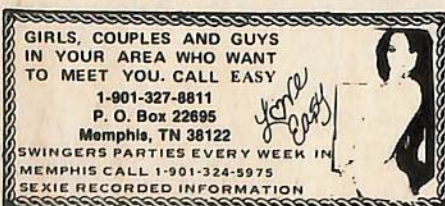 GIRLS, COUPLES AND GUYS
IN YOUR AREA WHO WANT
TO MEET YOU. CALL EASY
1-901-327-8811
P. O. Box 22695
Memphis, TN 38122
Love
Easy
SWINGERS PARTIES EVERY WEEK IN
MEMPHIS CALL 1-901-324-5975
SEXIE RECORDED INFORMATION